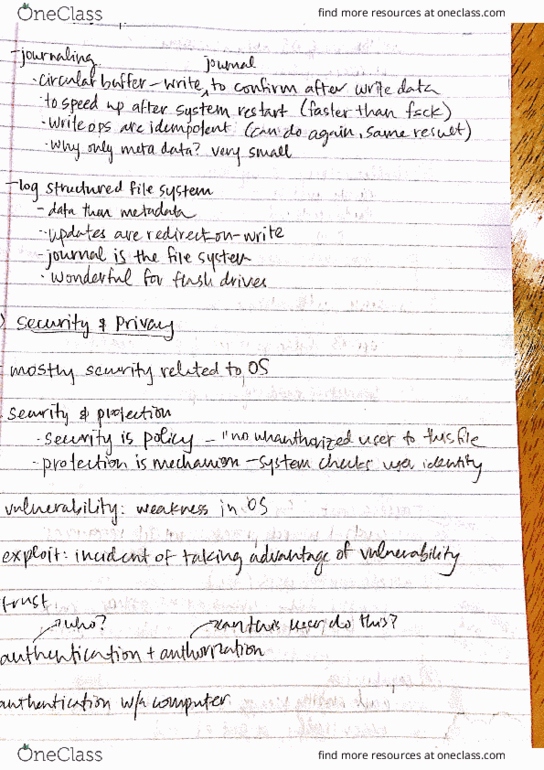 OneClass
find more resources at oneclass.com
-journaling
journal
·circular buffer - write ^ to confirm after write data
·to speed up after system restart (faster than fsck)
·write ops are idempotent (can do again, same result)
·Why only meta data? very small
-log structured file system
- data then metadata
·updates are redirect-on-write
-journal is the file system
· wonderful for flash drives
) Security & Privacy
mostly security related to OS
security & protection
·security is policy - "no unauthorized user to this file
·protection is mechanism - system checks user identity
vulnerability: weakness in OS
exploit: incident of taking advantage of vulnerability
trust
who? can this user do this?
authentication + authorization
authentication w/a computer
OneClass
find more resources at oneclass.com